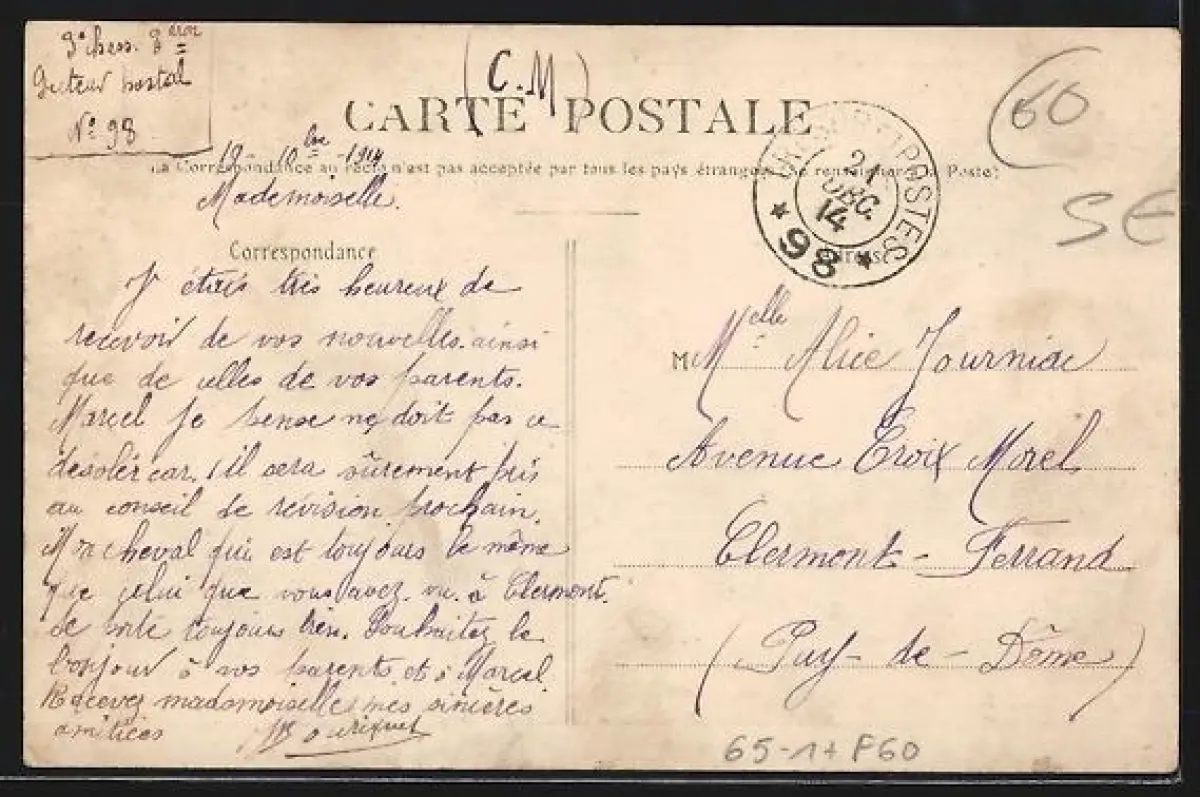 3e chass. 3 eron
Secteur postal
No 98
(C.M)
60
SE
CARTE POSTALE
18 - 10bre - 1914
La Correspondance au recto n'est pas acceptée par tous les pays étrangers (Se renseigner à la Poste)
Mademoiselle.
Correspondance
J'étais très heureux de
recevoir de vos nouvelles. ainsi
que de celles de vos parents.
Marcel je pense ne doit pas ce
désoler car, il sera sûrement pris
au conseil de révision prochain.
Mon cheval qui est toujours le même
que celui que vous avez. vu. à Clermont.
se porte toujours bien. Souhaitez le
bonjour à vos parents et à Marcel
Recevez mademoiselle mes sincères
amitiées
POSTES
21
DEC.
14
* 98 *
Adresse
M Melle Alice Journiac
Avenue Croix Morel
Clermont-Ferrand
(Puy-de-Dôme)
65-1+ F60